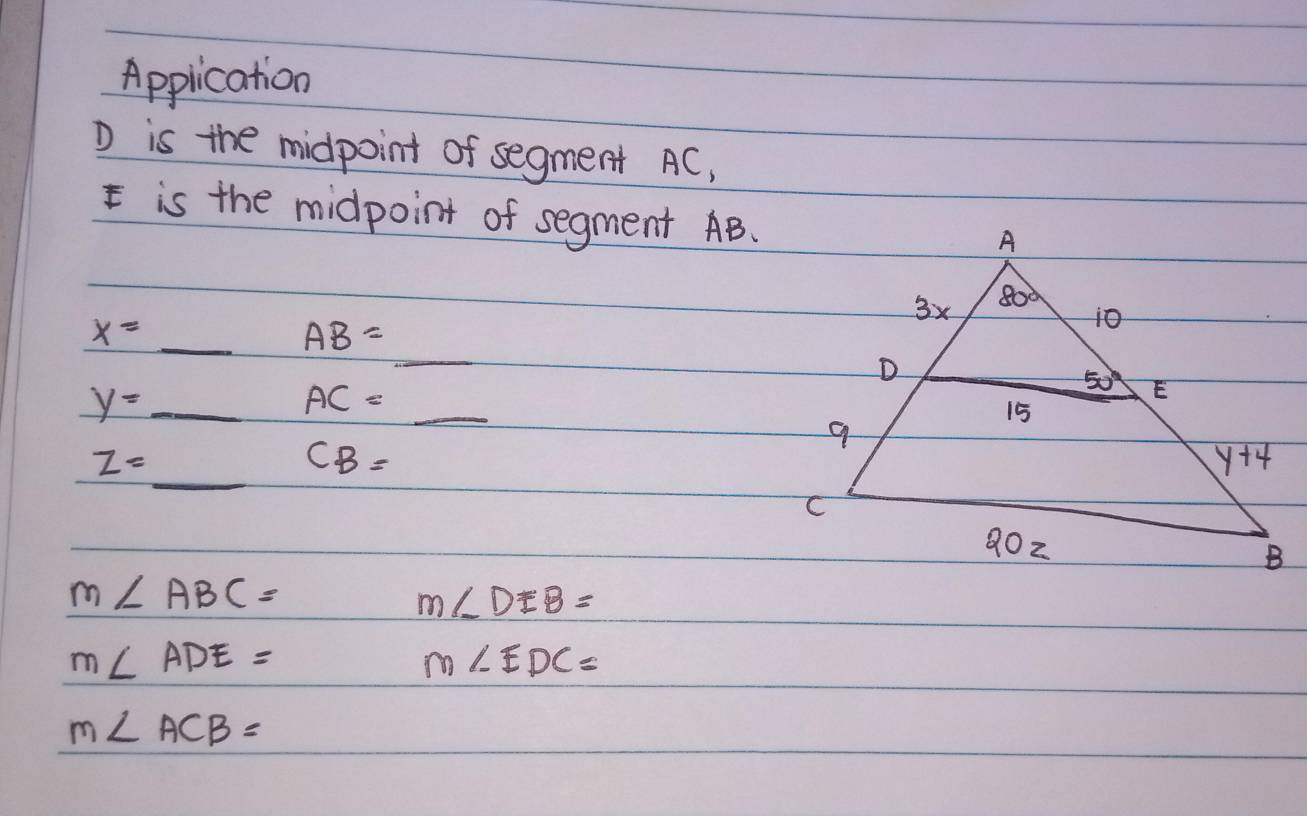 Application
D is the midpoint of segment AC,
E is the midpoint of segment AB.
A
80°
3x
10
x = ___ AB = ___
D
50°
E
15
y = ___ AC = ___
9
y+4
z = ___ CB =
C
20z
B
m∠ ABC = m∠DEB =
m∠ ADE = m∠EDC =
m∠ ACB =